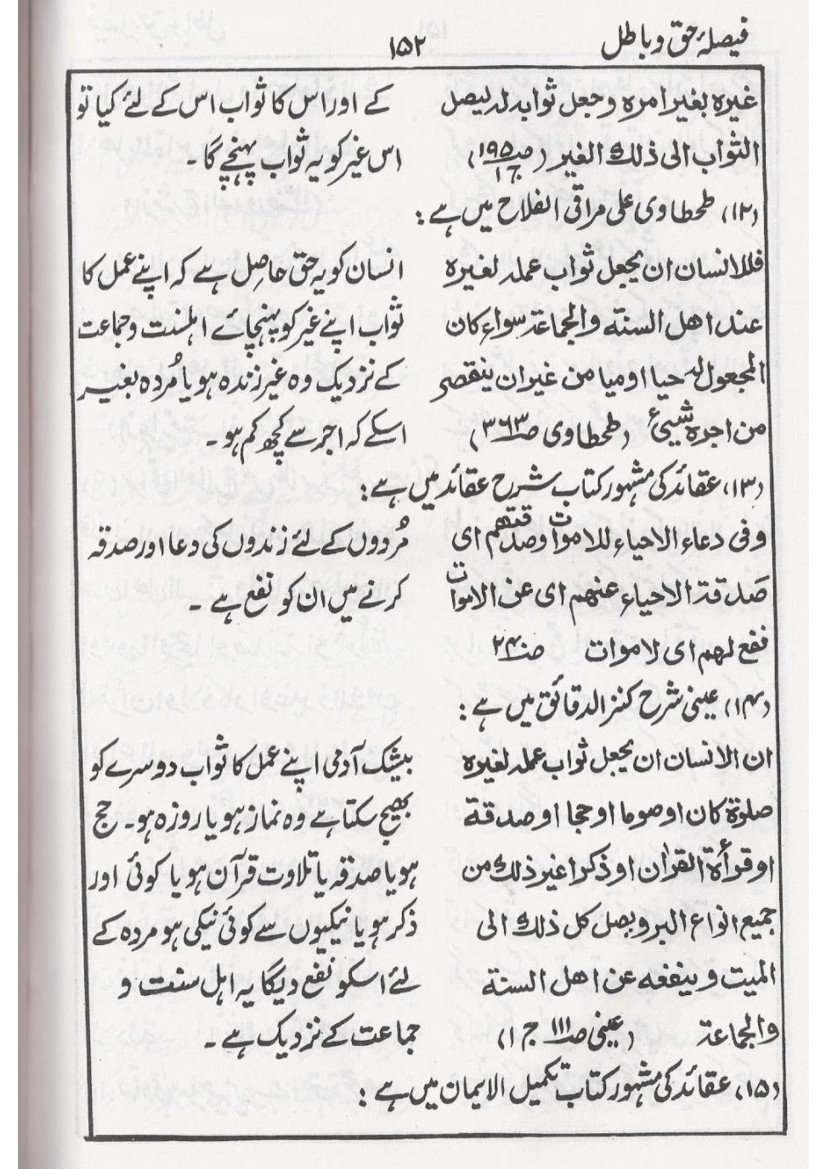 فیصلۂ حق و باطل
۱۵۲
غیرہ بغیر امرہ وجعل ثوابہ لہ لیصل
الثواب الی ذلک الغیر (صـ۱۹۵)
کے اور اس کا ثواب اس کے لئے کیا تو
اس غیر کو یہ ثواب پہنچے گا۔
(۱۲) طحطاوی علی مراقی الفلاح میں ہے:
فللانسان ان یجعل ثواب عملہ لغیرہ
عند اھل السنۃ والجماعۃ سواء کان
المجعول لہ حیا او میتا من غیر ان ینقص
من اجرہ شیئ (طحطاوی صـ۳۶۳)
انسان کو یہ حق حاصل ہے کہ اپنے عمل کا
ثواب اپنے غیر کو پہنچائے اہلسنت وجماعت
کے نزدیک وہ غیر زندہ ہو یا مُردہ بغیر
اسکے کہ اجر سے کچھ کم ہو۔
(۱۳) عقائد کی مشہور کتاب شرح عقائد میں ہے:
وفی دعاء الاحیاء للاموات وصدقتھم ای
صدقۃ الاحیاء عنھم ای عن الاموات
نفع لھم ای لاموات صـ۲۴
مُردوں کے لئے زندوں کی دعا اور صدقہ
کرنے میں ان کو نفع ہے۔
(۱۴) عینی شرح کنز الدقائق میں ہے:
ان الانسان ان یجعل ثواب عملہ لغیرہ
صلوۃ کان او صوما او حجا او صدقۃ
او قرأۃ القراٰن او ذکرا غیر ذلک من
جمیع انواع البر و یصل کل ذلک الی
المیت و ینفعہ عن اھل السنۃ
والجماعۃ (عینی صـ۱۱۱ ج۱)
بیشک آدمی اپنے عمل کا ثواب دوسرے کو
بھیج سکتا ہے وہ نماز ہو یا روزہ ہو۔ حج
ہو یا صدقہ یا تلاوت قرآن ہو یا کوئی اور
ذکر ہو یا نیکیوں سے کوئی نیکی ہو مردہ کے
لئے اسکو نفع دیگا یہ اہل سنت و
جماعت کے نزدیک ہے۔
(۱۵) عقائد کی مشہور کتاب تکمیل الایمان میں ہے: